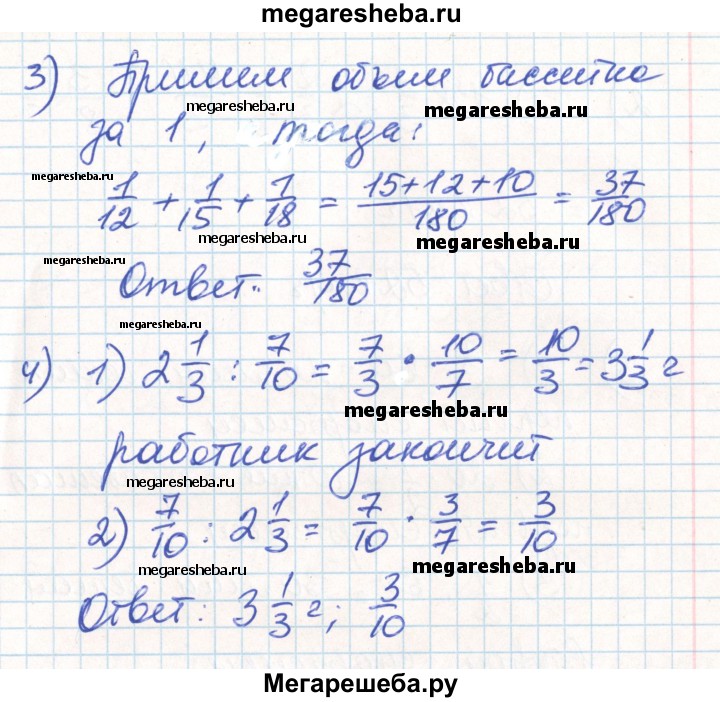 megaresheba.ru
3) Примем объем бассейна
megaresheba.ru megaresheba.ru
за 1, тогда:
megaresheba.ru
1/12 + 1/15 + 1/18 = (15+12+10)/180 = 37/180
megaresheba.ru megaresheba.ru
Ответ: 37/180
megaresheba.ru
megaresheba.ru
4) 1) 2 1/3 : 7/10 = 7/3 · 10/7 = 10/3 = 3 1/3 г
megaresheba.ru
работник закончит
megaresheba.ru
2) 7/10 : 2 1/3 = 7/10 · 3/7 = 3/10
megaresheba.ru megaresheba.ru
Ответ: 3 1/3 г; 3/10
Мегарешеба.ру